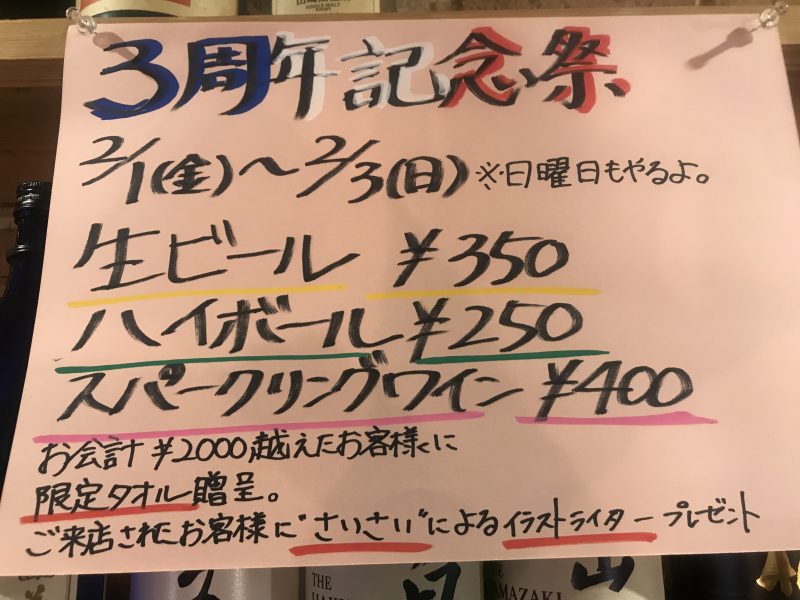 SINGLE MALT
3周年記念祭
2/1(金)〜2/3(日)※日曜日もやるよ。
生ビール ¥350
ハイボール ¥250
スパークリングワイン ¥400
お会計 ¥2000越えたお客様に
限定タオル贈呈。
ご来店されたお客様に"さいさい"によるイラストライタープレゼント
THE
THE
YAMAZAKI